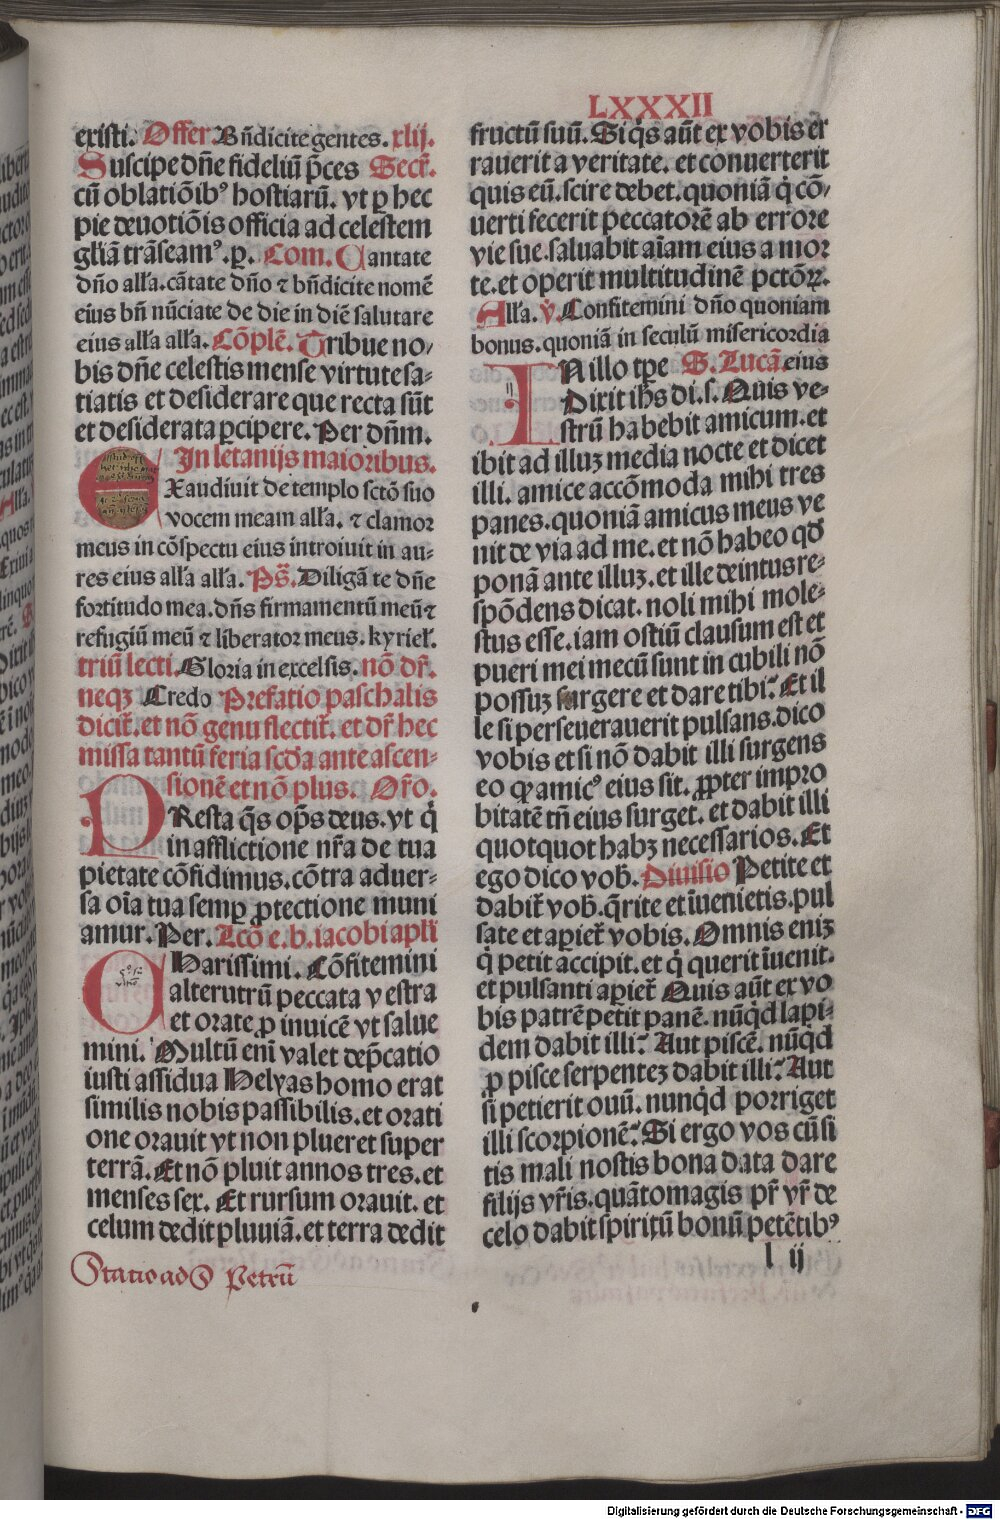 LXXXII
existi. Offer. Bñdicite gentes. xlij.
Suscipe dñe fideliū p̄ces Secr̄.
cū oblatiōibꝰ hostiarū. vt ꝑ hec
pie deuotiōis officia ad celestem
gl̄iā trāseamꝰ. ꝑ. Com. Cantate
dño all'a. cātate dño ⁊ bñdicite nomē
eius bñ nūciate de die in diē salutare
eius all'a all'a. Cōplē. Tribue no/
bis dñe celestis mense virtute sa-
tiatis et desiderare que recta sūt
et desiderata ꝑcipere. Per dñm.
In letanijs maioribus.
EXaudiuit de templo sctō suo
vocem meam all'a. ⁊ clamor
meus in cōspectu eius introiuit in au-
res eius all'a all'a. Ps̄. Diligā te dñe
fortitudo mea. dñs firmamentū meū ⁊
refugiū meū ⁊ liberator meus. kyriel'.
triū lecti. Gloria in excelsis. nō dr̄.
neqꝫ Credo Prefatio paschalis
dicit̄. et nō genu flectit̄. et dr̄ hec
missa tantū feria scd̄a ante ascen-
sionē et nō plus. Or̄o.
PResta q̄s op̄s deus. vt q̇
in afflictione nr̄a de tua
pietate cōfidimus. cōtra aduer-
sa oīa tua semꝑ ꝓtectione muni
amur. Per. Lcō e. b. iacobi apl'i
CHarissimi. Cōfitemini
alterutrū peccata vestra
et orate ꝓ inuicē vt salue
mini. Multū enī valet dep̄catio
iusti assidua Helyas homo erat
similis nobis passibilis. et orati
one orauit vt non plueret super
terrā. Et nō pluit annos tres. et
menses sex. Et rursum orauit. et
celum dedit pluuiā. et terra dedit
Statio ad S Petrū
fructū suū. Si q̇s aūt ex vobis er
rauerit a veritate. et conuerterit
quis eū. scire debet. quoniā q̇ cō-
uerti fecerit peccatorē ab errore
vie sue. saluabit aīam eius a mor
te. et operit multitudinē pctōꝝ.
All'a. v̇. Confitemini dño quoniam
bonus. quoniā in seculū misericordia
IN illo tꝑe S. Lucā. eius
Dixit ih̄s di. s. Quis ve-
strū habebit amicum. et
ibit ad illuꝫ media nocte et dicet
illi. amice accōmoda mihi tres
panes. quoniā amicus meus ve
nit de via ad me. et nō habeo qd̄
ponā ante illuꝫ. et ille deintus re-
spōdens dicat. noli mihi mole-
stus esse. iam ostiū clausum est et
pueri mei mecū sunt in cubili nō
possuꝫ surgere et dare tibi. Et il
le si perseuerauerit pulsans. dico
vobis et si nō dabit illi surgens
eo ꝙ amicꝰ eius sit. ꝓpter impro
bitatē tñ eius surget. et dabit illi
quotquot habꝫ necessarios. Et
ego dico vob̄. Diuisio Petite et
dabit̄ vob̄. q̄rite et īuenietis. pul
sate et aꝑiet̄ vobis. Omnis eniꝫ
q̇ petit accipit. et q̇ querit īuenit.
et pulsanti aꝑiet̄ Quis aūt ex vo
bis patrē petit panē. nūqd̄ lapi-
dem dabit illi? Aut piscē. nūqd̄
ꝓ pisce serpenteꝫ dabit illi? Aut
si petierit ouū. nunqd̄ porriget
illi scorpionē? Si ergo vos cū si
tis mali nostis bona data dare
filijs vr̄is. quātomagis pr̄ vr̄ de
celo dabit spiritū bonū petētibꝰ
l ij
Digitalisierung gefördert durch die Deutsche Forschungsgemeinschaft - DFG